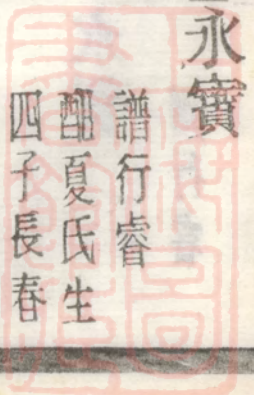 永寶
譜行睿
配夏氏生
四子長春